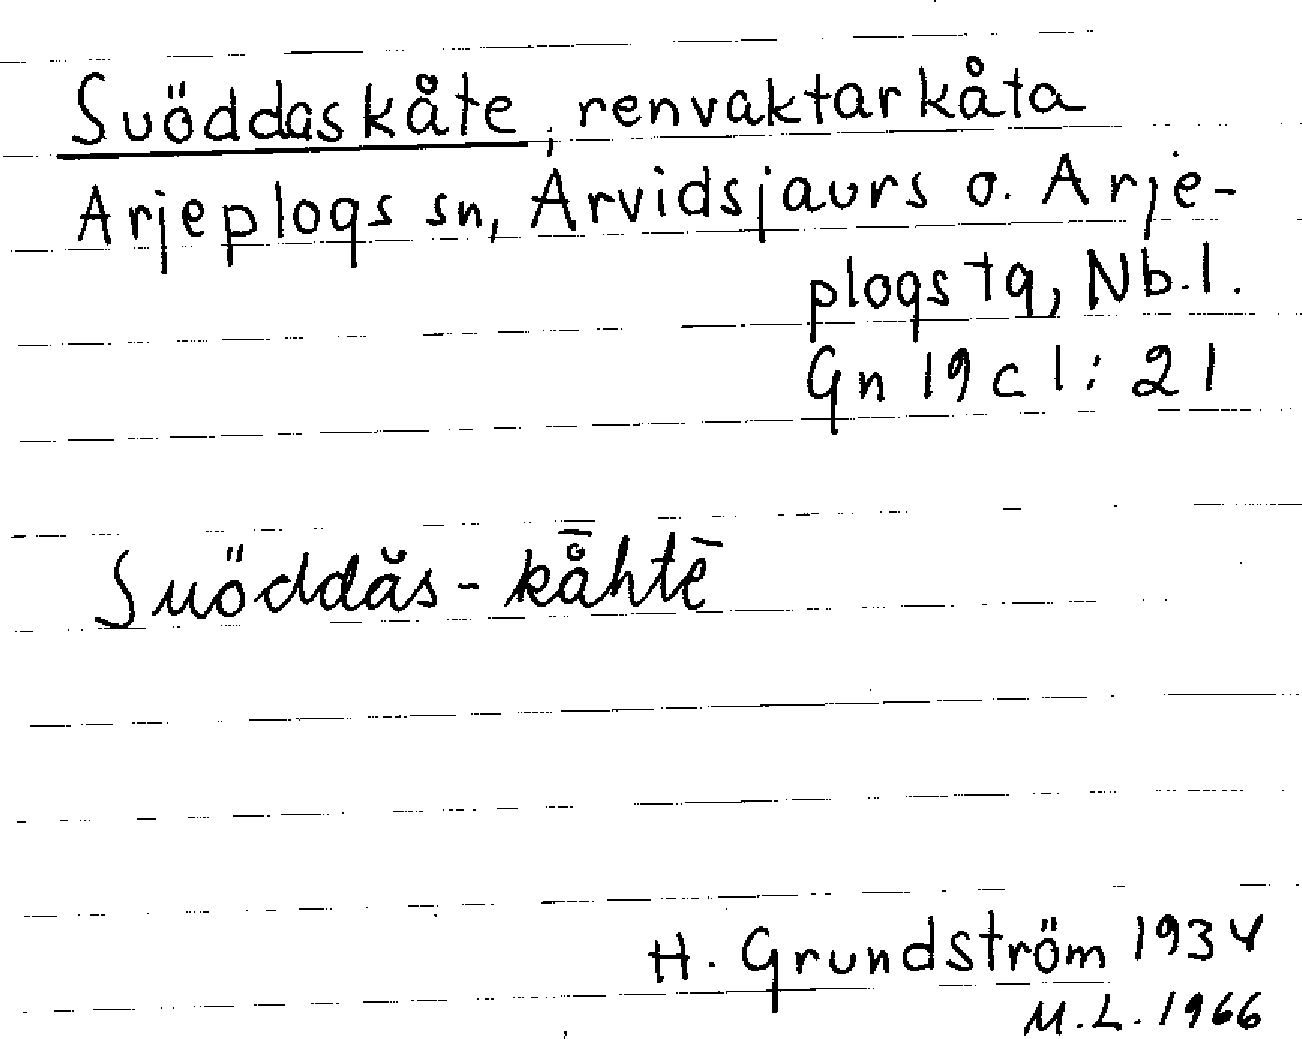 Suöddaskåte, renvaktarkåta
Arjeplogs sn, Arvidsjaurs o. Arje-
plogs tg, Nb.l.
Gn 19 c 1: 21
Suöddăs-kå̄htē
H. Grundström 1934
M.L. 1966